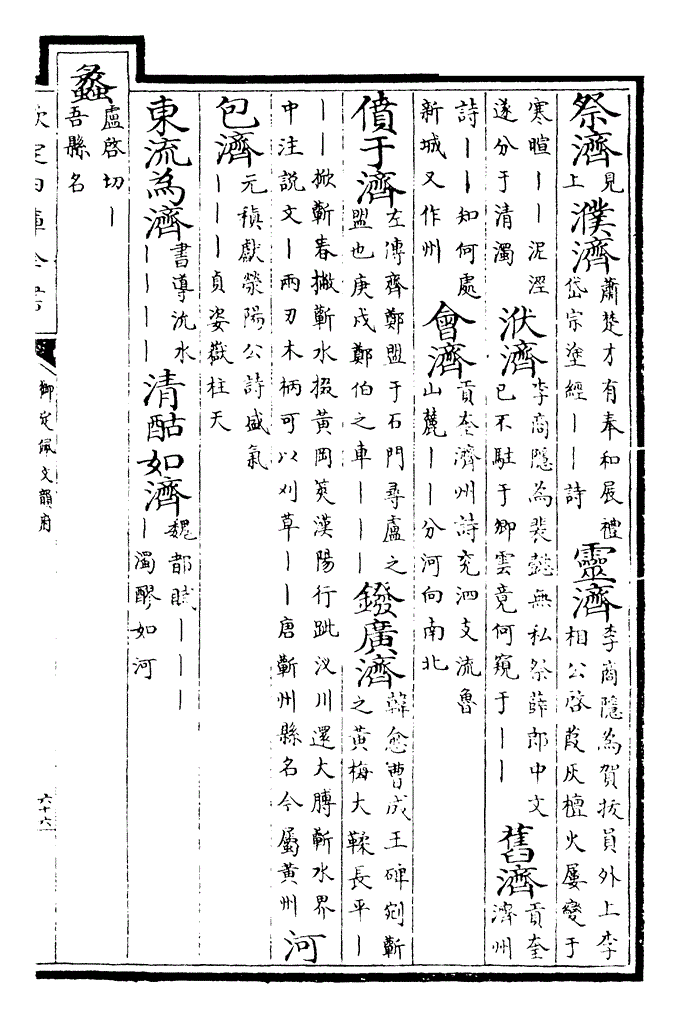 祭濟見上濮濟蕭楚才有奉和展禮岱宗塗經丨丨詩靈濟李商隱為賀拔員外上李相公啓葭灰檀火屢變于
寒暄丨丨泥涇遂分于清濁洑濟李商隱為裴懿無私祭薛郎中文已不駐于卿雲竟何窺于丨丨舊濟貢奎濟州
詩丨丨知何處新城又作州會濟貢奎濟州詩兖泗支流魯山麓丨丨分河向南北
僨于濟左傳齊鄭盟于石門尋盧之盟也庚戍鄭伯之車丨丨丨鏺廣濟韓愈曹成王碑剜蘄之黄梅大鞣長平丨
丨丨掀蘄春撇蘄水掇黄岡筴漢陽行跐汊川還大膊蘄水界中注説文丨兩刃木柄可以刈草丨丨唐蘄州縣名今屬黄州河
包濟元稹獻滎陽公詩盛氣丨丨丨貞姿嶽柱天
東流為濟書導沇水丨丨丨丨清酤如濟魏都賦丨丨丨丨濁醪如河
蠡盧啓切丨吾縣名
欽定四庫全書
御定佩文韻府
六十六